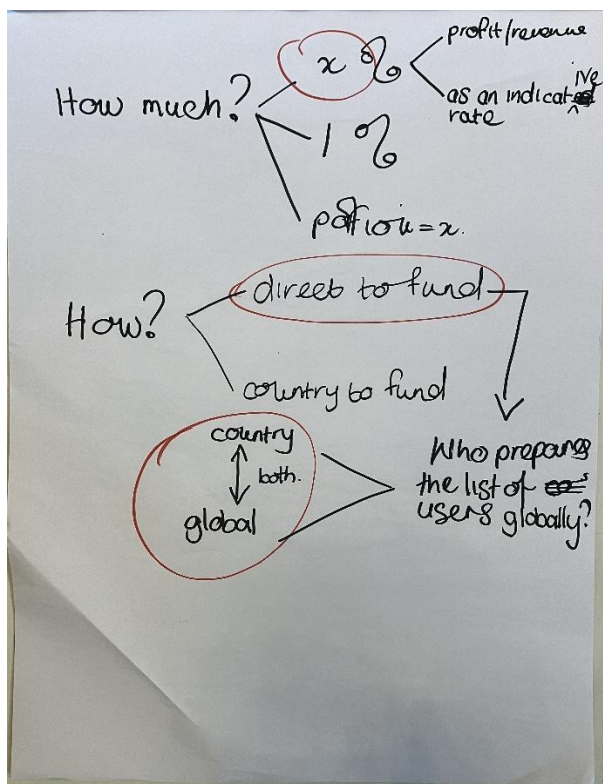 profit/revenue
x %
How much?
as an indicative
rate
1 %
portion = x.
direct to fund
How?
country to fund
country
both.
global
Who prepares
the list of
users globally?